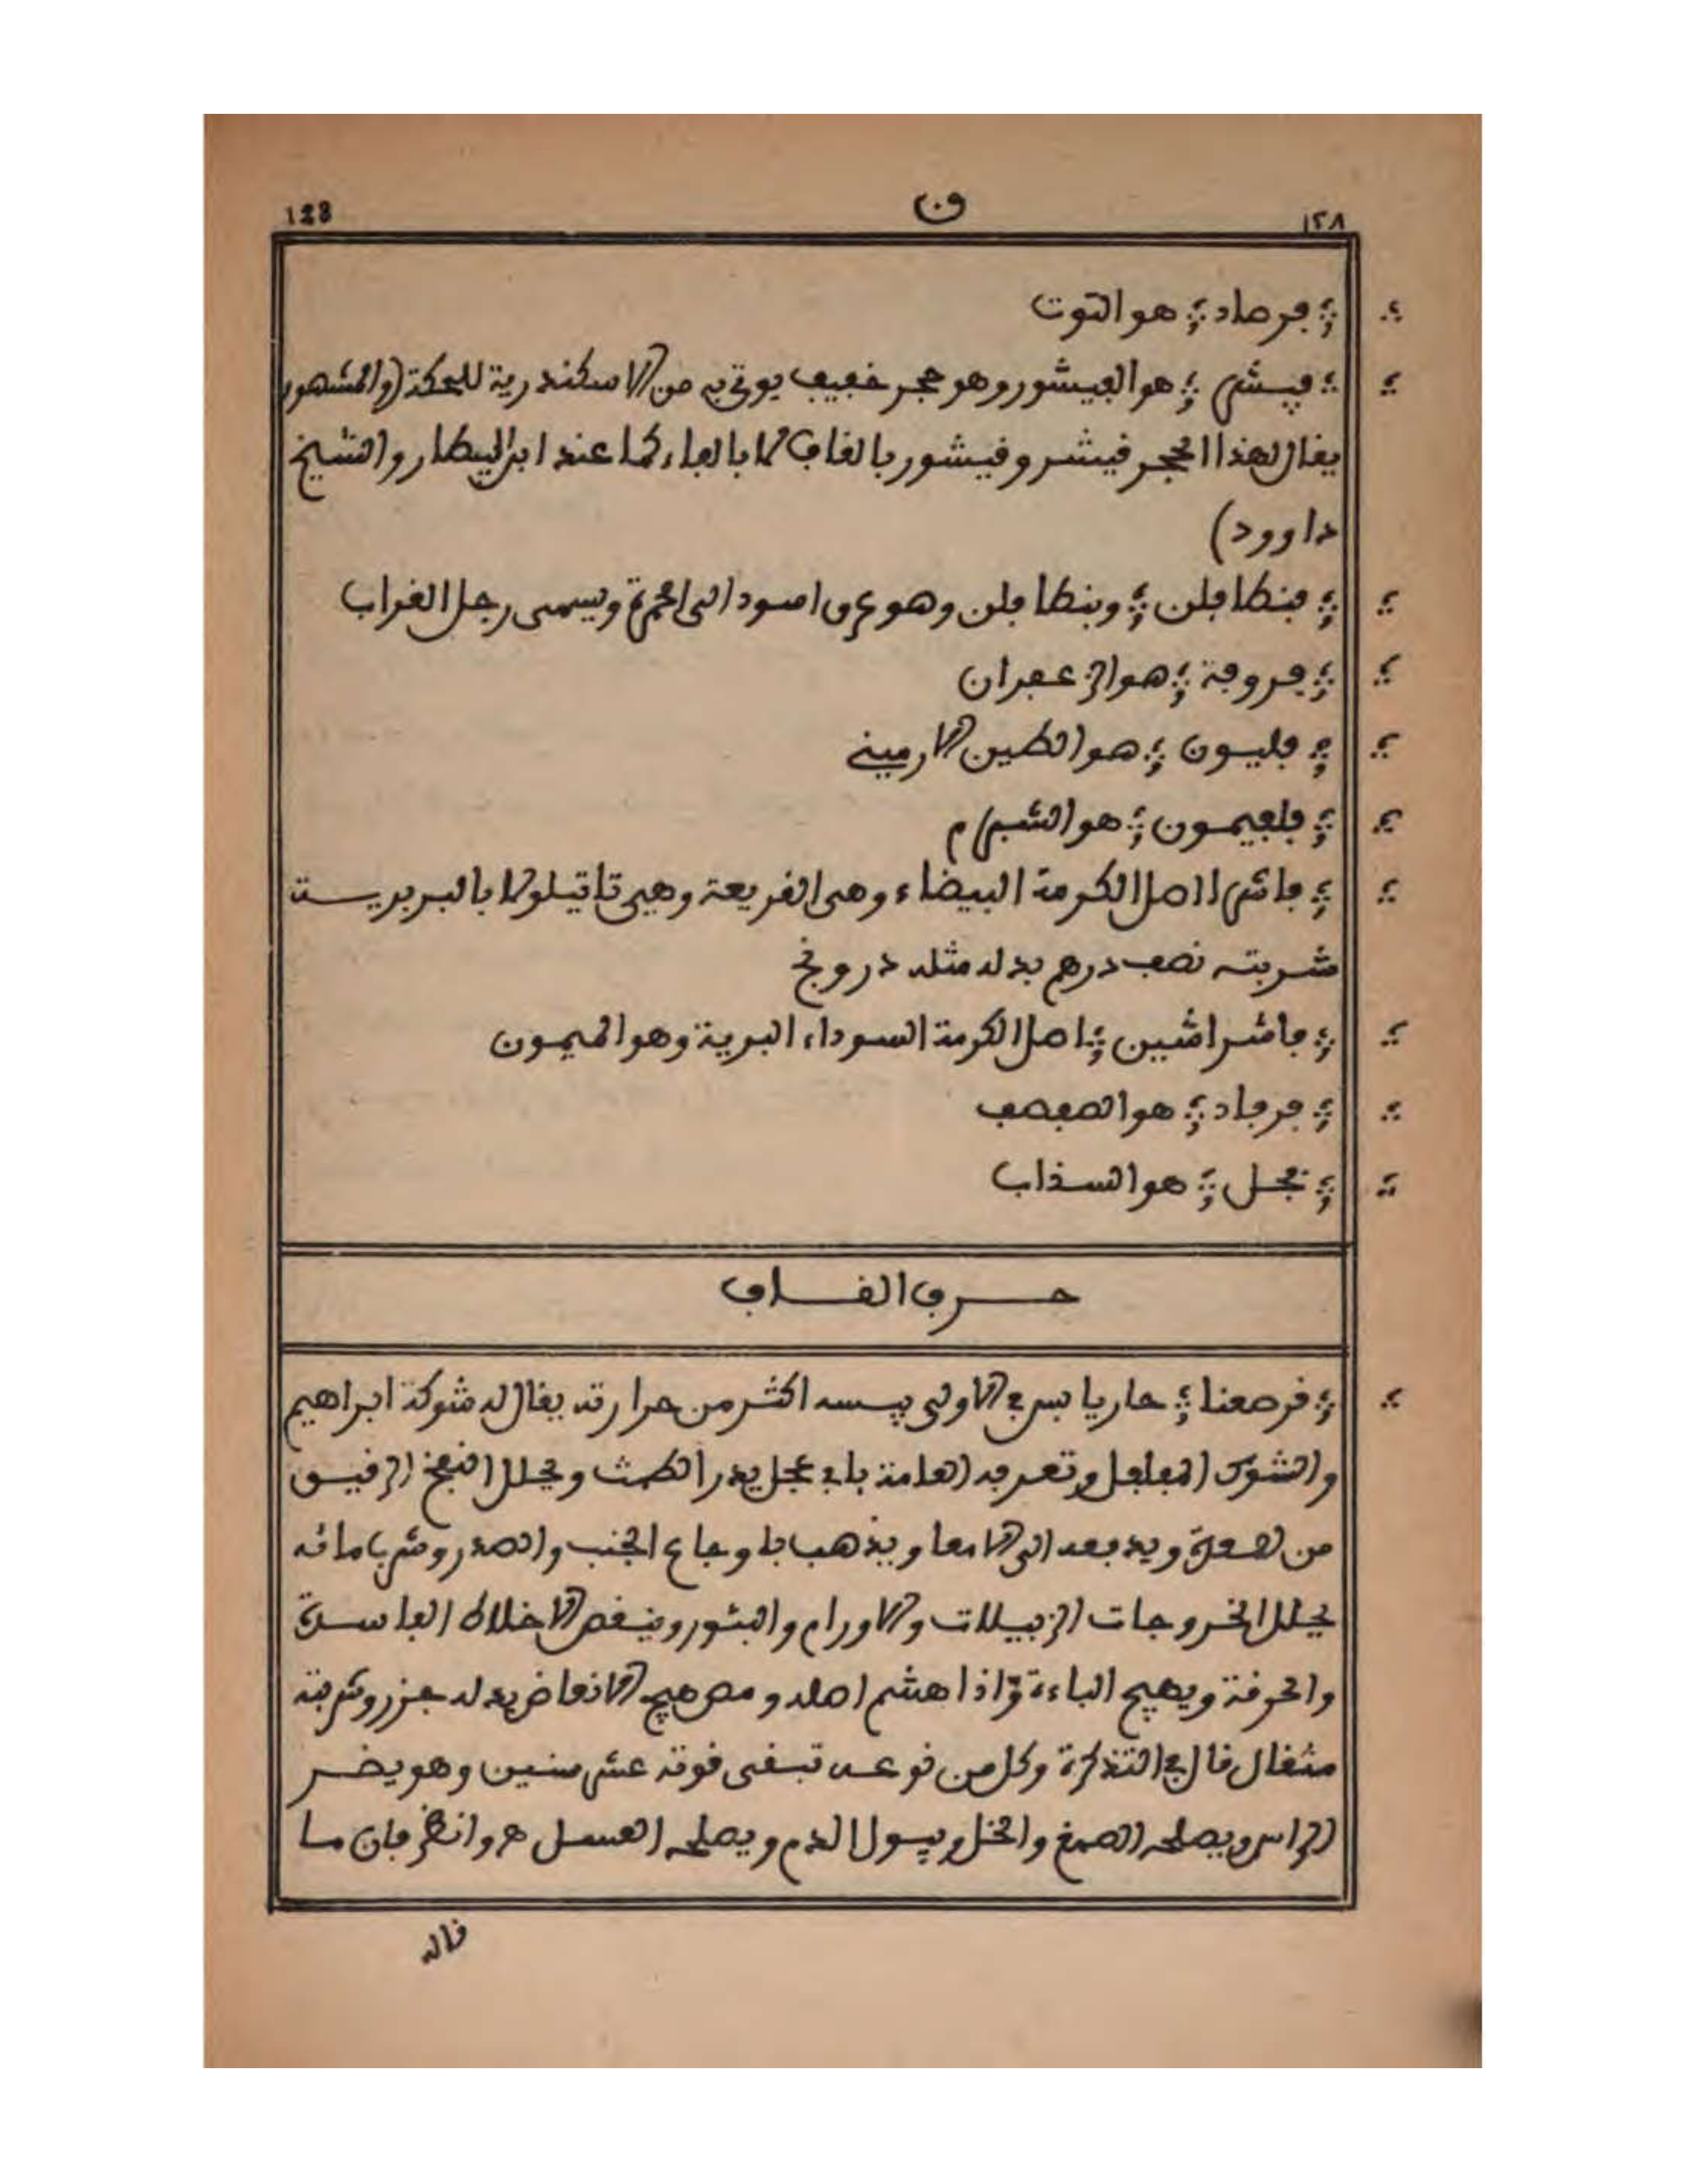 128 ق ١٢٨
؛ فرصاد ؛ هو التوت
؛ فيشر ؛ هو الفيشور وهو حجر خفيف يوتى به من الاسكندرية للحكة (والمشهور
يقال لهذا الحجر قيشر وقيشور بالقاف لا بالفاء كما عند ابن البيطار والشيخ
داوود)
؛ فنطافلن ؛ وبنطافلن وهو عرق اسود الى الحمرة ويسمى رجل الغراب
؛ فروفة ؛ هو الزعفران
؛ فليون ؛ هو الطين الارميني
؛ فلفيمون ؛ هو الشبرم
؛ فاشرا اصل الكرمة البيضاء وهي القريعة وهي تاتيلولا بالبربريت
شربته نصف درهم بدله مثله درونج
؛ فاشراشين ؛ اصل الكرمة السوداء البرية وهو الميمون
؛ فرفاد ؛ هو الصفصف
؛ فجل ؛ هو السذاب
حرف القاف
؛ قرصعنا ؛ حار يابس في الاولى يبسه اكثر من حرارته يقال له شوكة ابراهيم
والشوك المفلفل وتعرفه العامة بابي عجل يدر الطمث ويحلل النفخ الرقيق
من لصعق ويدفعه الى الامعا ويذهب باوجاع الجنب والصدر وشرب مائه
يحلل الخروجات الزبيلات والاورام والبثور وينقص الاخلاط الفاسدة
والحرقة ويهيج الباءة وّاذا هشم اصله ومص هيج الانعاض بدله جزر وشربته
مثقال قال في التذكرة وكل من نوعيه تبقى قوته عشر سنين وهو يضر
الراس ويصلحه الصمغ والخل ويبول الدم ويصلحه العسل هـ وانظر فان ما
قاله